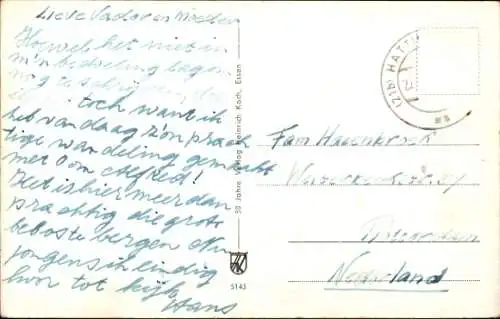 Lieve Vader en Moeder
Hoewel het niet in
m'n bedoeling lagen
nog te schrijven, doe
toch want ik
heb vandaag zo'n prach
tige wandeling gemaakt
met Oom Alfred!
Het is hier meer dan
prachtig die grote
beboste bergen. Nu
jongens ik eindig
hoor tot kijk
Hans
50 Jahre Verlag Heinrich Koch, Essen
HK
5143
(21b) HATT
Fam Hasenbroek
Nederland